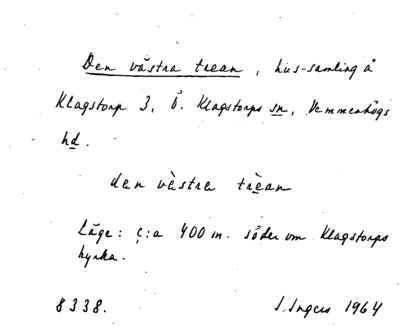 Den västra trean, hus-samling å
Klagstorp 3, Ö. Klagstorps sn, Vemmenhögs
hd.
den vàstra trèan
Läge: c:a 400 m. söder om Klagstorps
kyrka.
8338. I. Ingers 1964